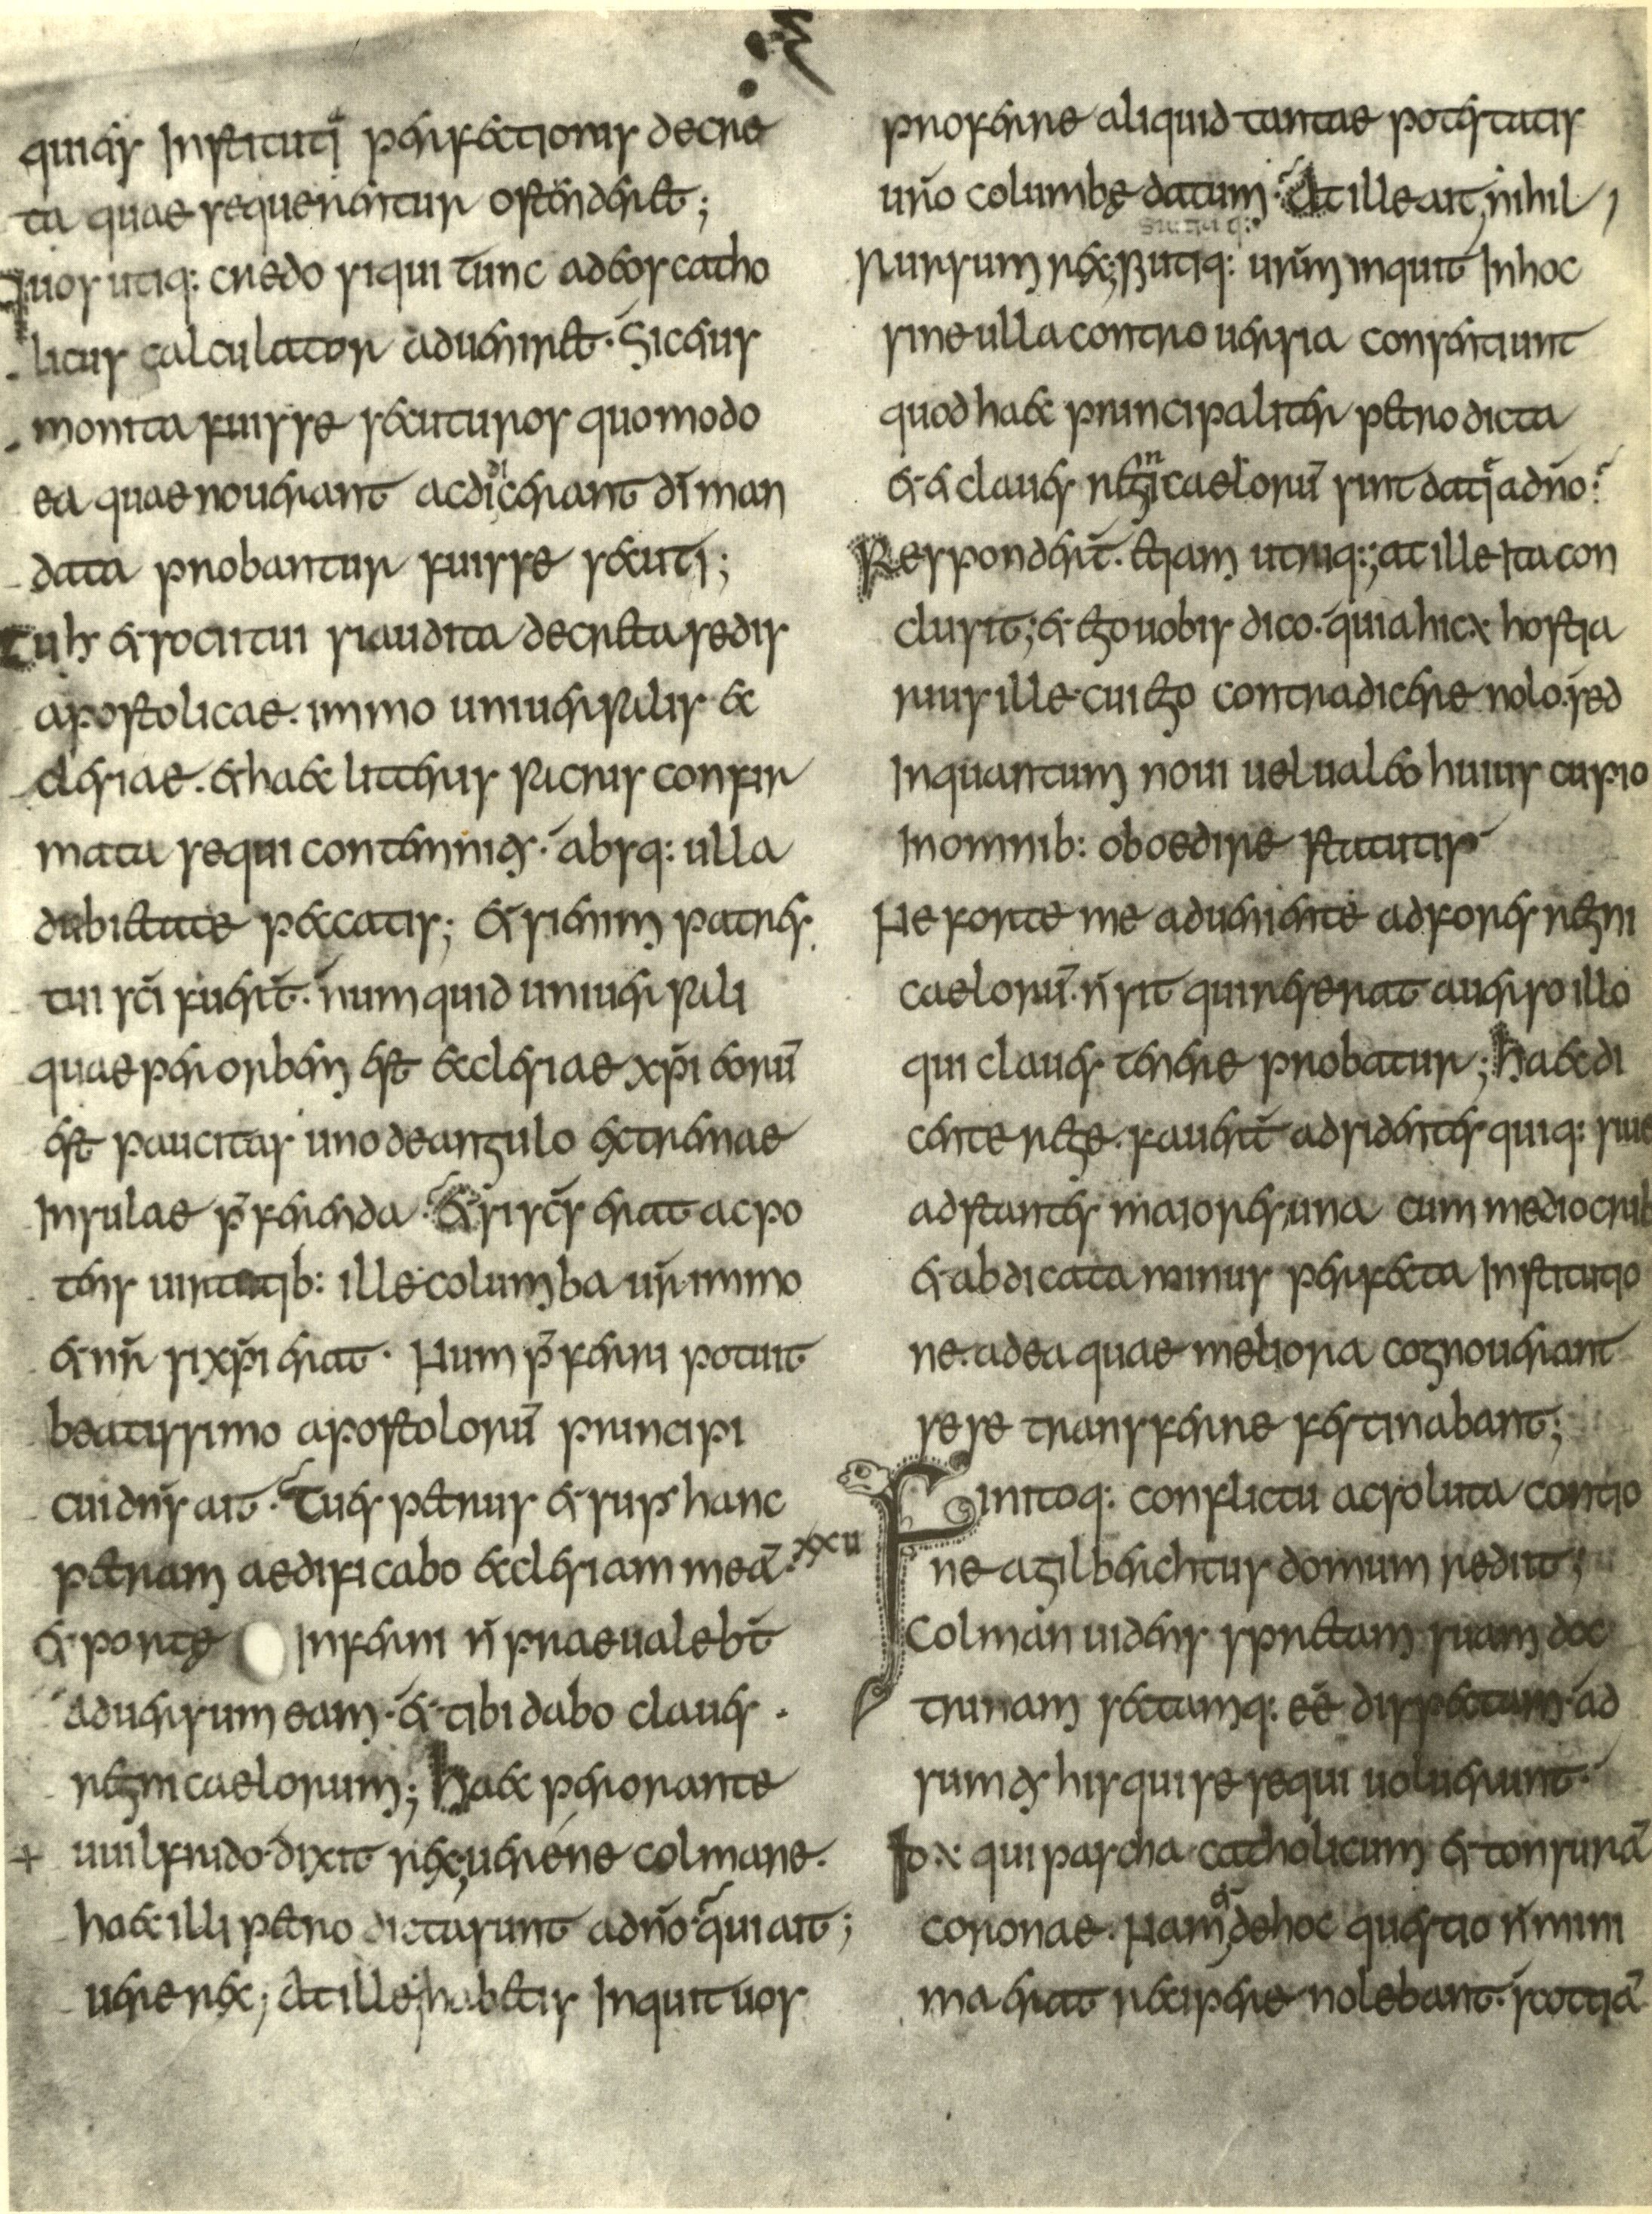 qui eis instituti perfectionis decre
ta quae sequerentur ostenderet;
quos utiq: credo siqui tunc ad eos catho
licus calculator adueniret. sic eius
monita fuisse secuturos quomodo
ea quae nouerant ac didicerant di man
data probantur fuisse secuti;
Tu h̄ & socii tui si audita decreta sedis
apostolicae. immo uniuersalis ec
clesiae. & haec litteris sacris confir
mata sequi contemnitis. absq: ulla
dubietate peccatis; Et si enim patres
tui sc̄i fuer̄t. num quid uniuersali
quae per orbem est ecclesiae xp̄i eorū
est paucitas uno de angulo extremae
insulae p̄ferenda. Et si sc̄s erat ac po
tens uirtutib: ille columba ur̄ immo
& nr̄ si xp̄i erat. Num p̄ferri potuit
beatissimo apostolorū principi
cui dn̄s ait. Tu es petrus & sup hanc
petram aedificabo ecclesiam meā.
& porte inferni n̄ praeualebt̄
aduersum eam. & tibi dabo claues
regni caelorum; Haec perorante
uuilfrido. dixit rex; uerene colmane.
haec illi petro dicta sunt a dn̄o. qui ait;
uere rex; At ille; habetis inquit uos
proferre aliquid tantae potestatis
ur̄o columbę datum. At ille ait, nihil
rursum rex; Si utiq: urm̄ inquit in hoc
sine ulla controuersia consentiunt
quod haec principaliter petro dicta
& ei claues regni caelorū sint dati a dn̄o.
Responder̄t. etiam utriq:; at ille ita con
clusit; & ego uobis dico. quia hic ÷ hostia
rius ille cui ego contradicere nolo. sed
in quantum noui uel ualeo huius cupio
in omnib: oboedire statutis
Ne forte me adueniente ad fores regni
caelorū. n̄ sit qui reserat auerso illo
qui claues tenere probatur; Haec di
cente rege. fauer̄t adsidentes quiq: siue
adstantes maiores, una cum mediocrib
& abdicata minus perfecta institutio
ne. ad ea quae meliora cognouerant
sese transferre festinabant;
xxu Finitoq: conflictu ac soluta contio
ne agilberchtus domum rediit;
Colman uidens spretam suam doc
trinam sectamq: eē dispectam. ad
sumtis his qui se sequi uoluerunt.
Id ÷ qui pascha catholicum & tonsurā
coronae. Nam & de hoc quęstio n̄ mini
ma erat recipere nolebant. scottiā